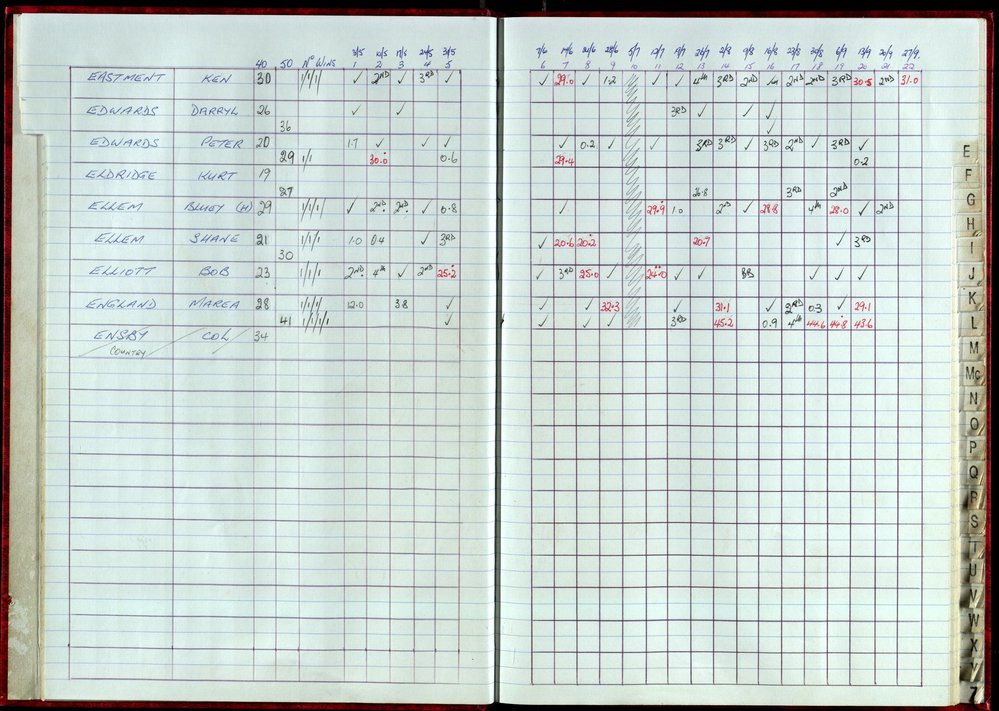 3/5 10/5 17/5 24/5 31/5 7/6 14/6 21/6 28/6 5/7 12/7 19/7 26/7 2/8 9/8 16/8 23/8 30/8 6/9 13/9 20/9 27/9
40 50 Nº WINS 1 2 3 4 5 6 7 8 9 10 11 12 13 14 15 16 17 18 19 20 21 22
EASTMENT KEN 30 1/1/1/ ✓ 2ND ✓ 3RD ✓ ✓ 29.0 ✓ 1.2 ✓ ✓ 4th 3RD 2ND 2ND 2ND 3RD 30.5 2ND 31.0
EDWARDS DARRYL 26 ✓ ✓ 3RD ✓ ✓ ✓
36 ✓
EDWARDS PETER 20 1.7 ✓ ✓ ✓ ✓ 0.2 ✓ ✓ 3RD 3RD ✓ 3RD 2ND ✓ 3RD ✓
29 1/1 30.0 0.6 29.4 0.2
ELDRIDGE KURT 19
27 26.8 3RD 2ND
ELLEM BLUEY (H) 29 1/1/1/ ✓ 2ND 2ND ✓ 0.8 ✓ 29.9 1.0 2ND ✓ 28.8 4th 28.0 ✓ 2ND
ELLEM SHANE 21 1/1/1 1.0 0.4 ✓ 3RD ✓ 20.6 20.2 20.7 ✓ 3RD
30
ELLIOTT BOB 23 1/1/1 2ND 4th ✓ 2ND 25.2 ✓ 3RD 25.0 ✓ 24.0 ✓ ✓ ✓ ✓ ✓
ENGLAND MAREA 28 1/1/1/ 12.0 3.8 ✓ ✓ ✓ 32.3 ✓ 31.1 ✓ 2RD 0.3 ✓ 29.1
41 1/1/1/1 ✓ ✓ ✓ ✓ 3RD 45.2 0.9 4th 44.6 44.8 43.6
ENSBY COL 34
COUNTRY
E
F
G
H
I
J
K
L
M
Mc
N
O
P
Q
R
S
T
U
V
W
X
Y
Z